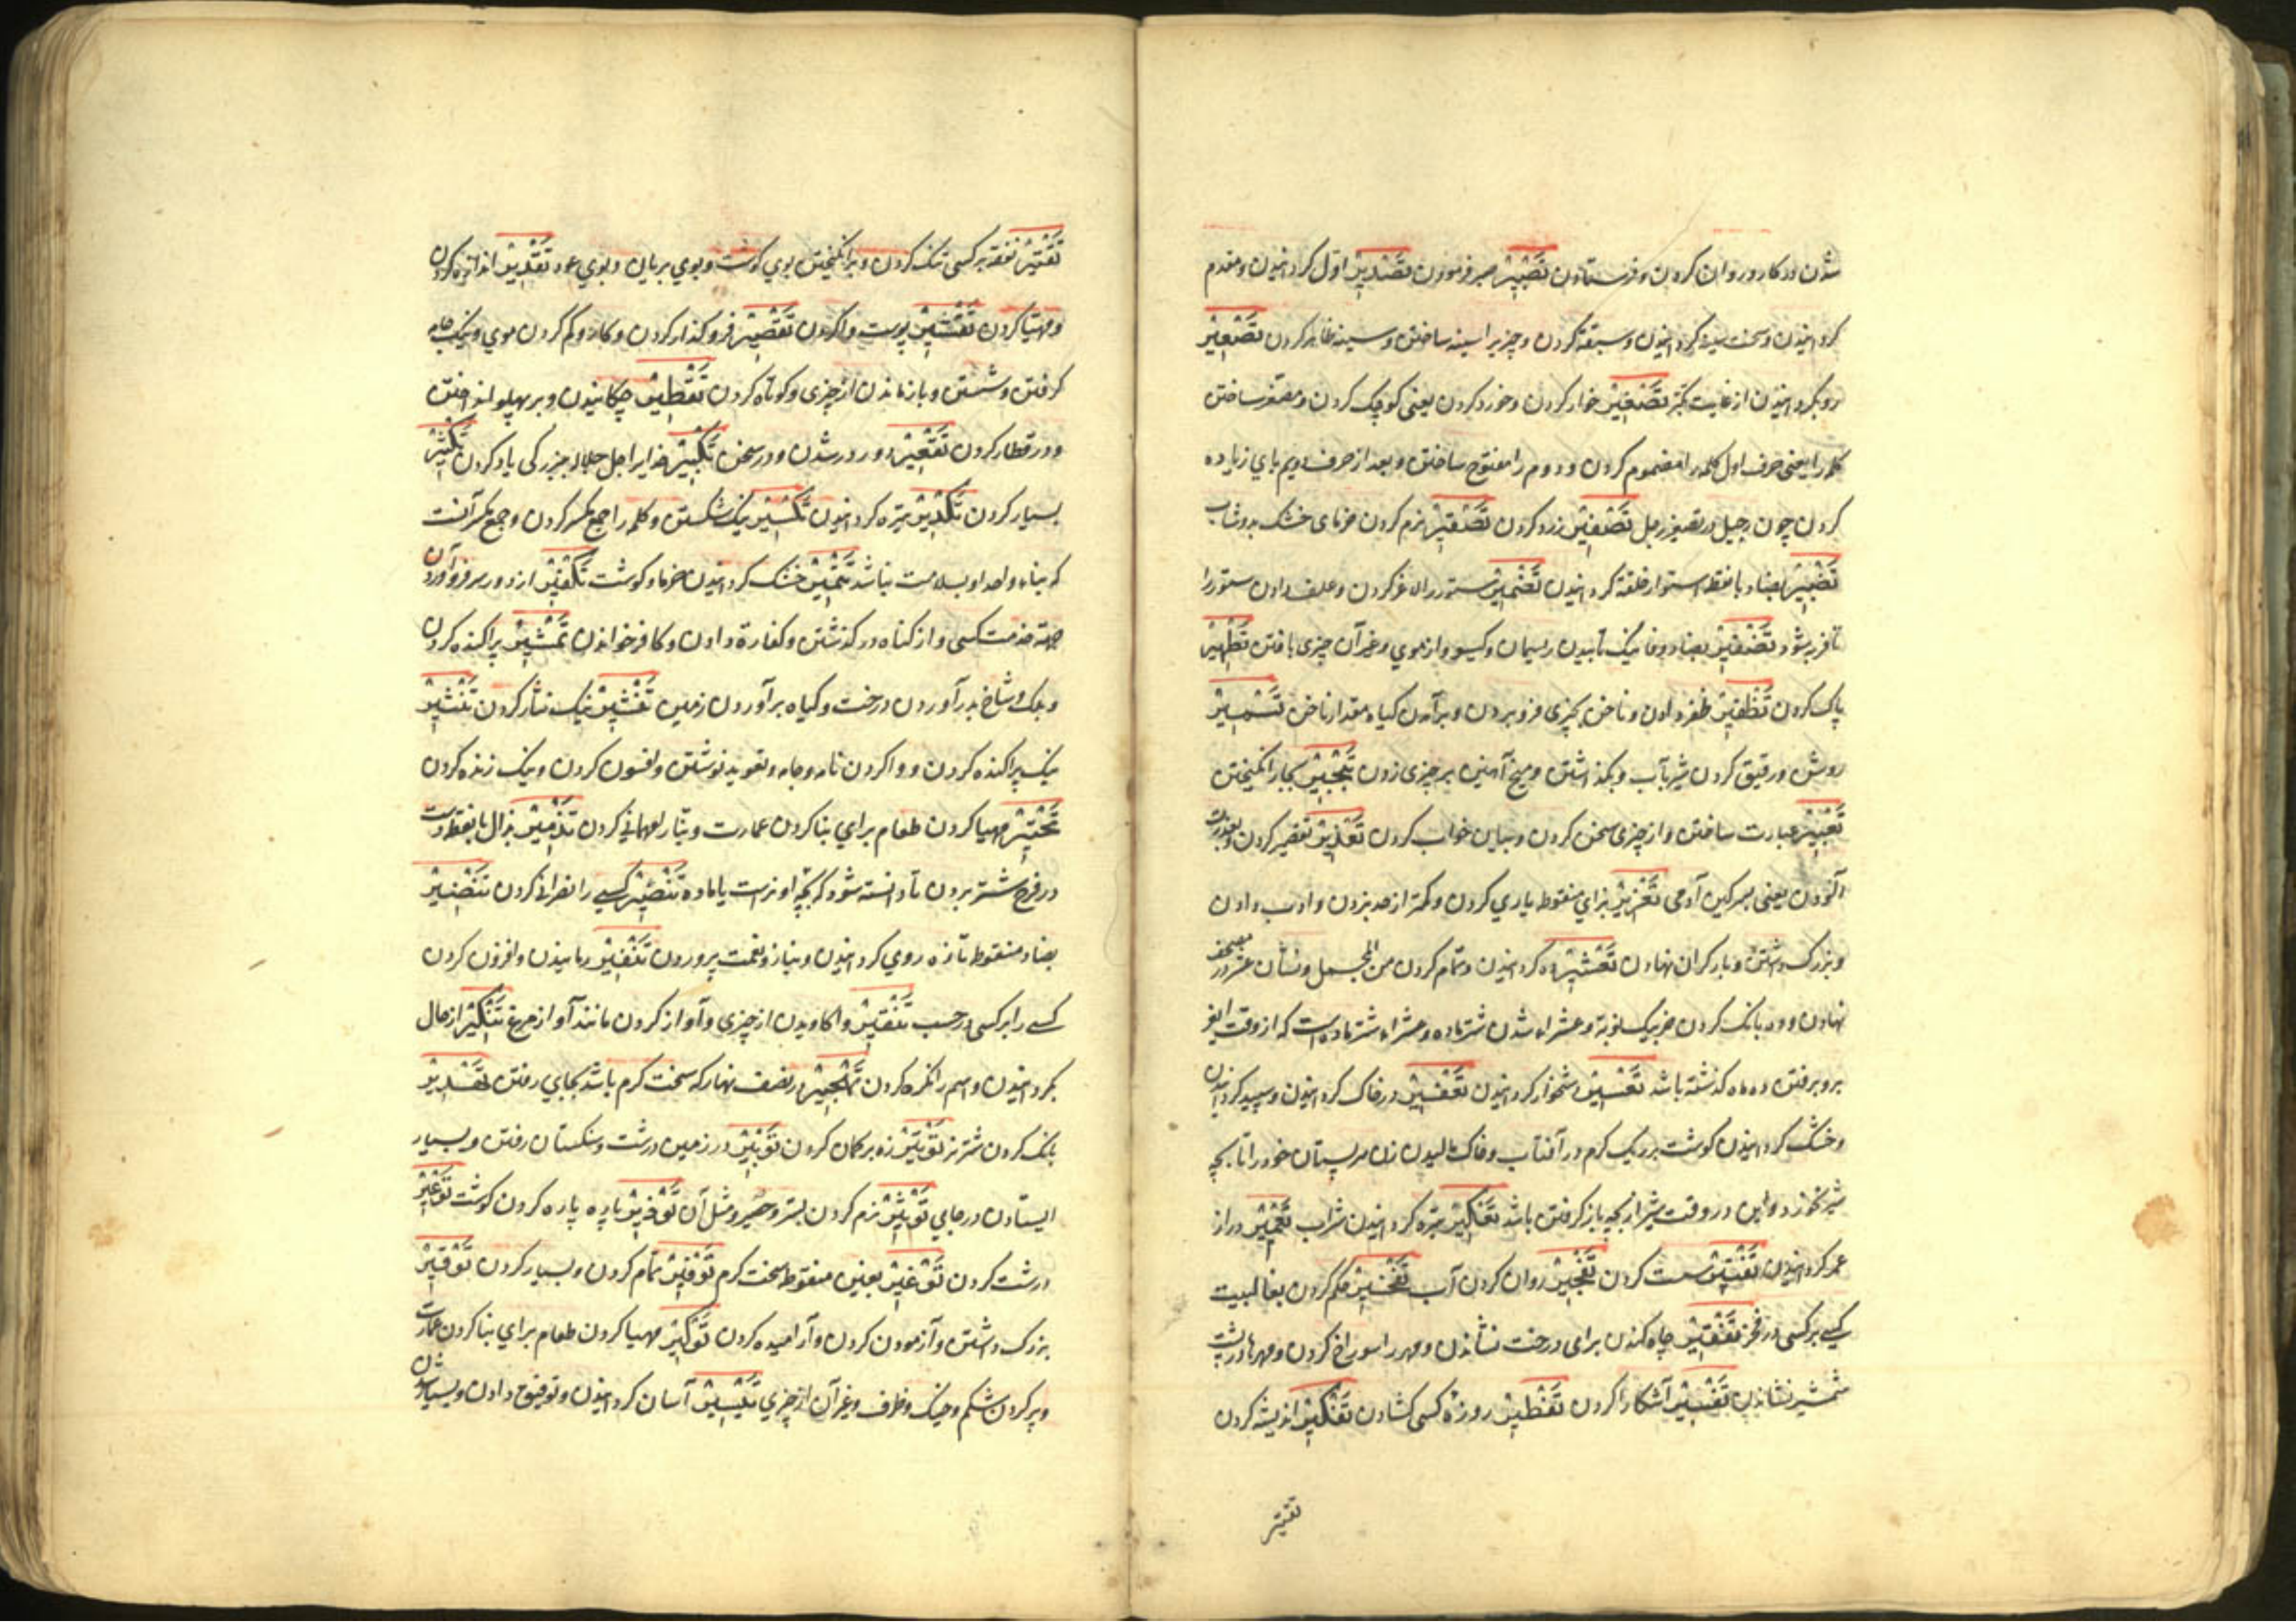 شدن در کار و روان کردن و فرستادن تَصْبِیْر صبر فرمودن تَصْدِیْر اول کردانیدن و مقدم
کردانیدن و سخت سینه کردانیدن و سبقة کردن و چیزیرا سینه ساختن و سینه ظاهر کردن تَصْعِیْر
رو بکردانیدن از غایت کبر تَصْغِیْر خوار کردن و خورد کردن یعنی کوچک کردن و مصغر ساختن
کلمه را یعنی حرف اول کلمه را مضموم کردن و دوم را مفتوح ساختن و بعد از حرف دویم یای زیاده
کردن چون رجیل در تصغیر رجل تَصْفِیْر زرد کردن تَصْقِیْر نرم کردن خرمای خشک بدوشاب
تَضْبِیْر بضاد با نقطه استوار خلقة کردانیدن تَضْمِیْر ستور را لاغر کردن و علف دادن ستور را
تا فربه شود تَضْفِیْر بضاد و فا نیک تابیدن ریسمان و کیسو و از موی و غیر آن چیزی بافتن تَطْهِیْر
پاک کردن تَظْفِیْر ظفر دادن و ناخن بچیزی فرو بردن و برآمدن کیاه مقدار ناخن تَسْمِیْر
روشن و رقیق کردن شیر بآب و بکذاشتن و میخ آهنین بر چیزی زدن تَبْخِیْر بخار انکیختن
تَعْبِیْر عبارت ساختن و از چیزی سخن کردن و بیان خواب کردن تَعْذِیْر تقصیر کردن و بعذرت
آلودن یعنی بسرکین آدمی تَعْزِیْر بزای منقوط یاری کردن و کمتر از حد بزدن و ادب دادن
و بزرک داشتن و بار کران نهادن تَعْشِیْر ده کردانیدن و تمام کردن من المجمل و نشان عشر در مصحف
نهادن و ده بانک کردن خر بیک نوبة و عشراء شدن شتر ماده و عشراء شتر ماده است که از وقت
برو برفتن ده ماه کذشته باشد تَعْسِیْر دشخوار کردانیدن تَعْفِیْر در خاک کردانیدن و سپید کردانیدن
و خشک کردانیدن کوشت بر ریک کرم در آفتاب و خاک مالیدن زن سر پستان خود را تا بچه
شیر نخورد و این در وقت شیر از بچه باز کرفتن باشد تَعْکِیْر تیره کردانیدن شراب تَعْمِیْر دراز
عمر کردانیدن تَفْتِیْر سست کردن تَفْجِیْر روان کردن آب تَفْخِیْر حکم کردن بغالبیت
کسی بر کسی در فخر تَفْقِیْر چاه کندن برای درخت نشاندن و مهره را سوراخ کردن و مهرها در پشت
شمشیر نشاندن تَفْسِیْر آشکارا کردن تَفْطِیْر روزهٔ کسی کشادن تَفْکِیْر اندیشه کردن
تقتیر
تَقْتِیْر نفقه بر کسی تنک کردن و برانکیختن بوی کوشت و بوی بریان و بوی عود تَقْدِیْر اندازه کردن
و مهیا کردن تَقْشِیْر پوست وا کردن تَقْصِیْر فرو کذار کردن و کازر و کم کردن موی و نیک جامه
کرفتن و شستن و باز ماندن از چیزی و کوتاه کردن تَقْطِیْر چکانیدن و بر پهلو انداختن
و در قطار کردن تَقْعِیْر دور در شدن در سخن تَکْبِیْر خدایرا جل جلاله ببزرکی یاد کردن تَکْثِیْر
بسیار کردن تَکْدِیْر تیره کردانیدن تَکْسِیْر نیک شکستن و کلمه را جمع مکسر کردن و جمع مکسر آنست
که بناء واحد او بسلامت نباشد تَتْمِیْر خشک کردانیدن خرما و کوشت تَکْفِیْر از دور سر فرو آوردن
جهة خدمت کسی و از کناه در کذشتن و کفارة دادن و کافر خواندن تَمْشِیْر پراکنده کردن
و برک و شاخ بدر آوردن درخت و کیاه برآوردن زمین تَنْثِیْر نیک نثار کردن تَنْشِیْر
نیک پراکنده کردن و وا کردن نامه و جامه و تعویذ نوشتن و افسون کردن و نیک زنده کردن
تَحْتِیْر مهیا کردن طعام برای بنا کردن عمارت و بنا را مهمانی کردن تَذْمِیْر بذال با نقطه دست
در فرج شتر بردن تا دانسته شود که بچهٔ او نرست یا ماده تَنْصِیْر کسی را نصرانی کردن تَنْضِیْر
بضاد منقوط تازه روی کردانیدن و بناز و نعمت پروردن تَنْفِیْر رمانیدن و افزون کردن
کسی را بر کسی در حسب تَنْقِیْر وا کاویدن از چیزی و آواز کردن مانند آواز مرغ تَنْکِیْر از حال
بکردانیدن و اسم را نکره کردن تَهْجِیْر در نصف نهار که سخت کرم باشد بجای رفتن تَهْدِیْر
بانک کردن شتر نر تَوْتِیْر زه بر کمان کردن تَوْبِیْر در زمین درشت و سنکستان رفتن و بسیار
ایستادن در جای تَوْثِیْر نرم کردن بستر و حصیر و مثل آن تَوْذِیْر پاره پاره کردن کوشت تَوْعِیْر
درشت کردن تَوْغِیْر بعین منقوط سخت کرم تَوْفِیْر تمام کردن و بسیار کردن تَوْقِیْر
بزرک داشتن و آزمودن کردن و آرامیده کردن تَوْکِیْر مهیا کردن طعام برای بنا کردن عمارت
و پر کردن شکم و خیک و ظرف و غیر آن از چیزی تَیْسِیْر آسان کردانیدن و توفیق دادن و بسیار شدن